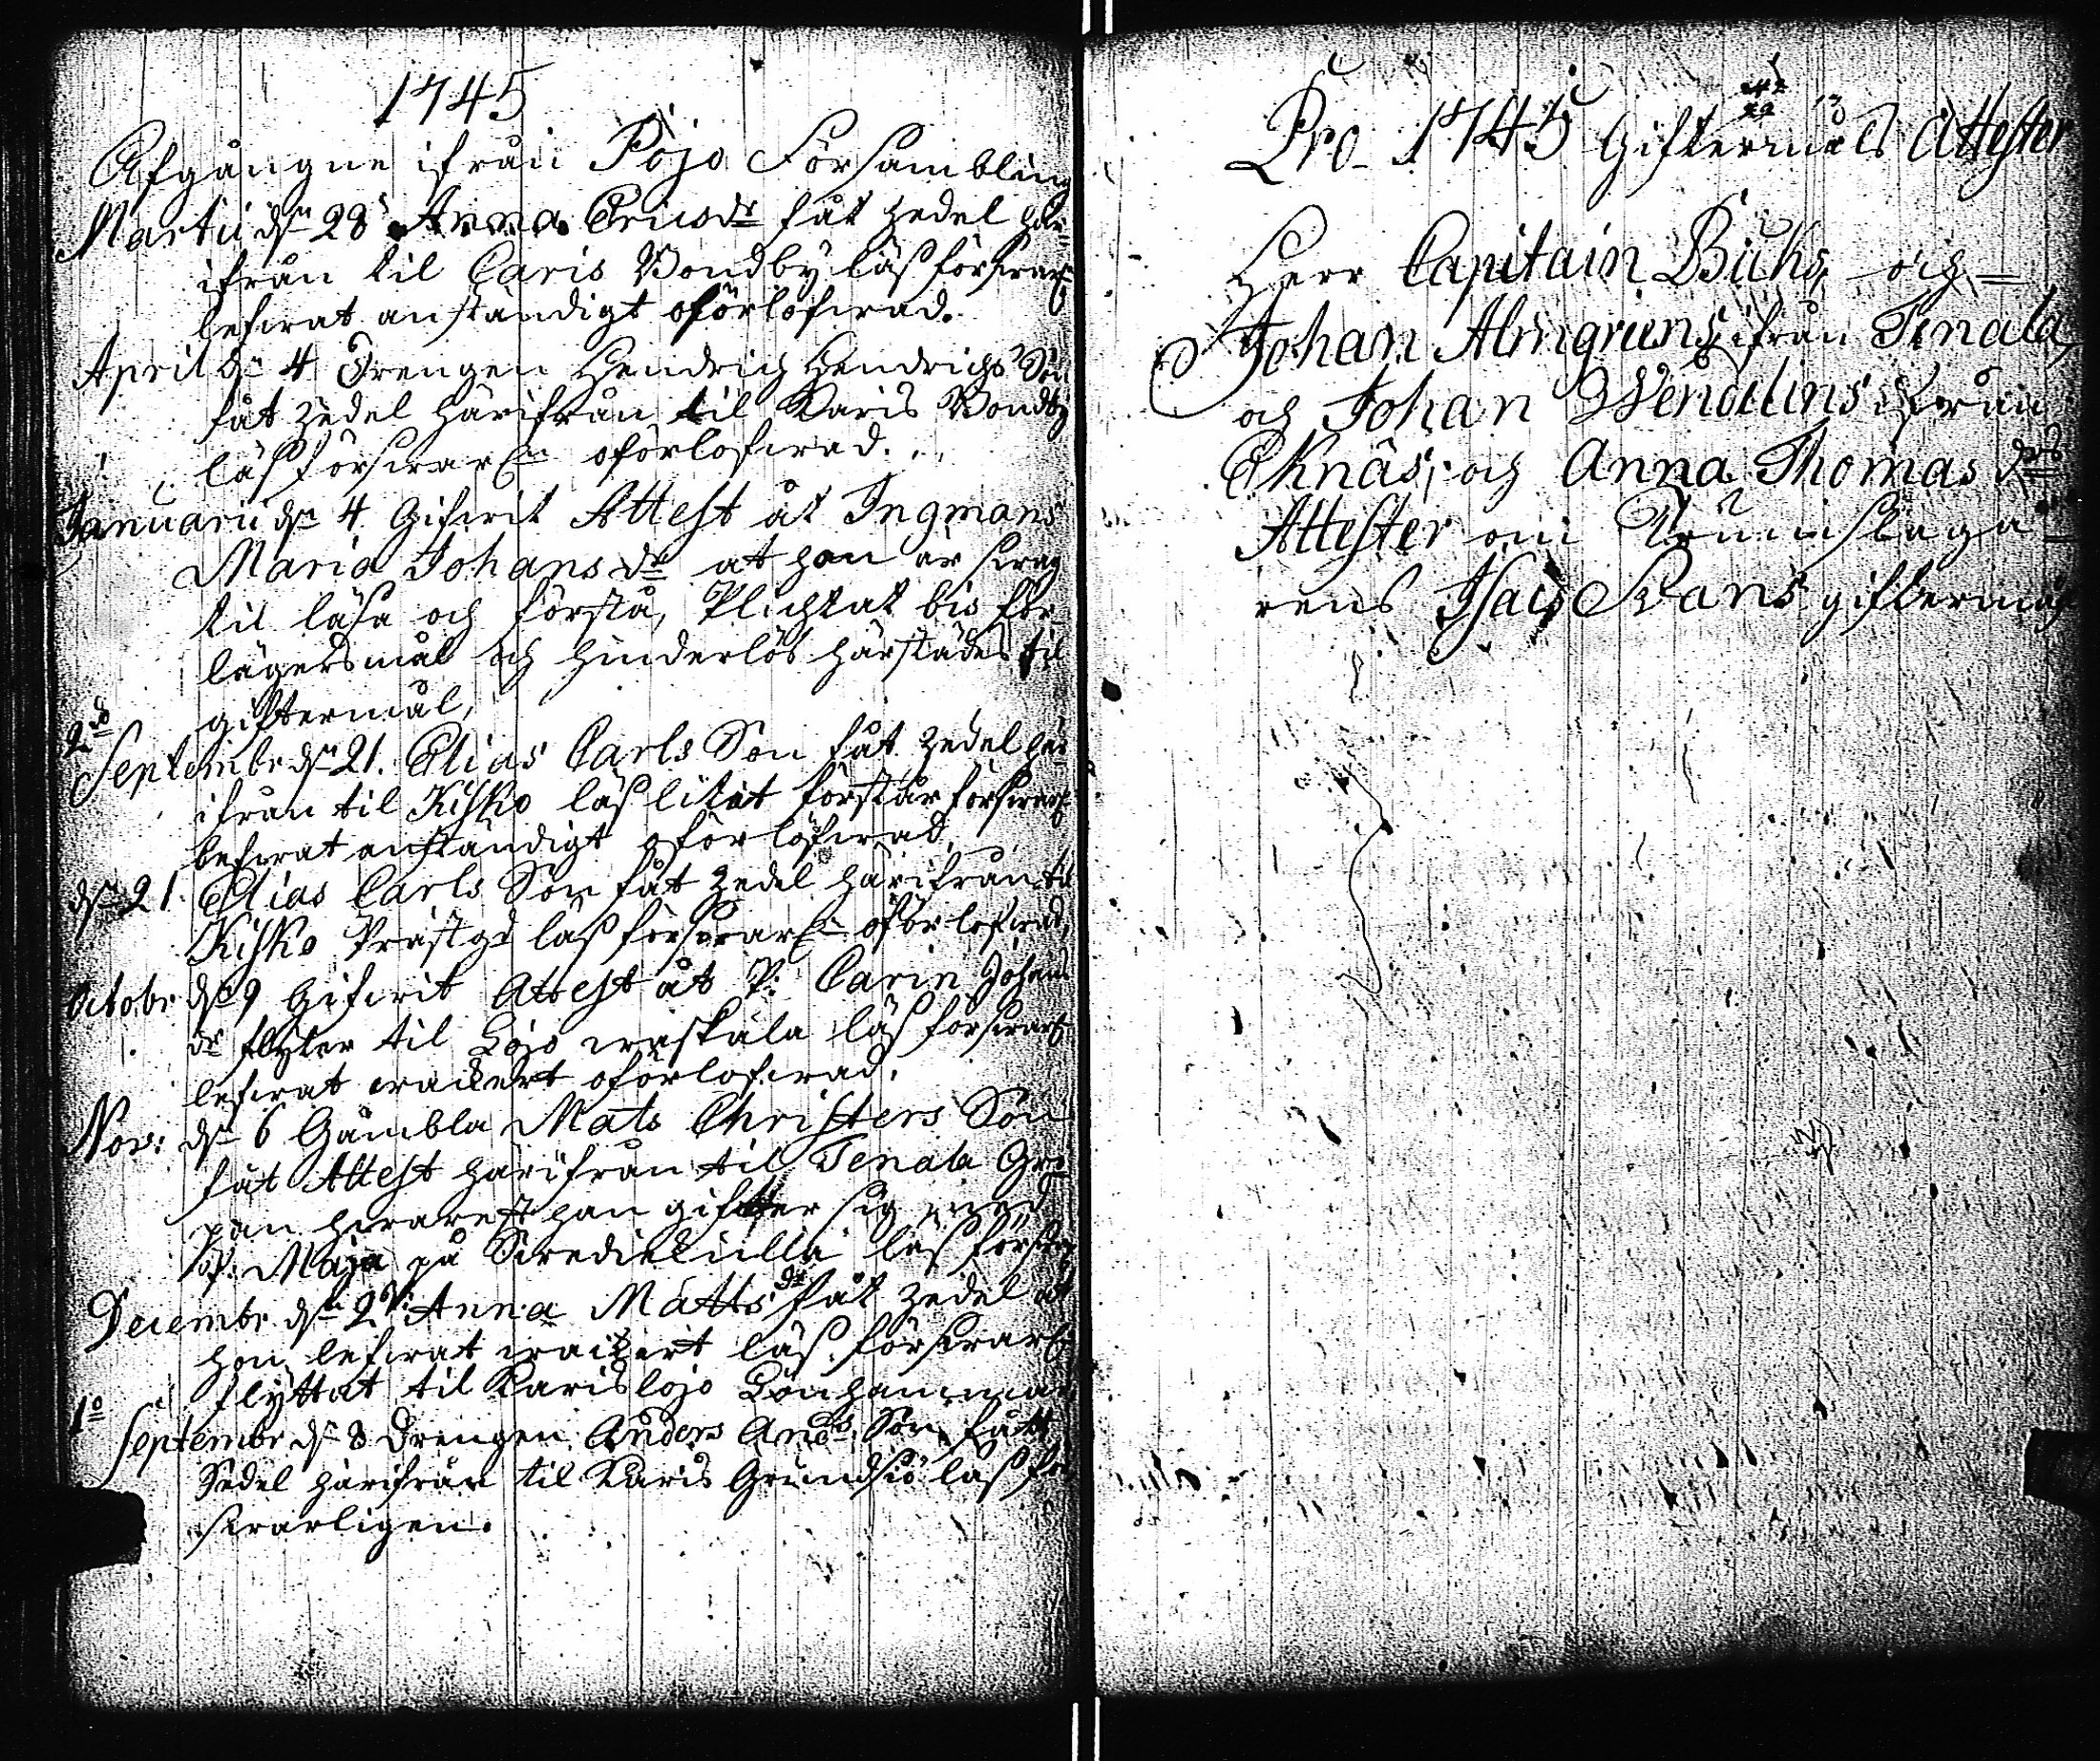 1745
Afgångne ifrån Pojo Försambling
Martii d. 28 Anna Ericsdr fåt zedel här
ifrån til Caris Bondby läs försvarl.
lefwat anständigt oförlofwad.
April d. 4 Drengen Hendrich Hendrichs Son
fåt zedel härifrån til Karis Bondby
läs försvarl. oförlofwad.
Januarii d. 4 Gifwit Attest åt Ingmans
Maria Johans dr at hon är swag
til läsa och förstå, Plichtat bis för
lägersmål och hinderlös härstädes til
giftermål,
2do
Septembr d. 21. Elias Carls Son fåt zedel här
ifrån til Kisko läs litet förstår försvarl
lefwat anständigt oförlofwad,
d. 21. Elias Carls Son fåt zedel härifrån til
Kisko Prästgd läs försvarl. oförlofwad,
Octobr d. 9 Gifwit Attest åt P: Carin Johans
dr flyter til Lojo läs försvarl
lefwat wackert oförlofwad.
Nov: d. 6 Gambla Mats Christers Son
fåt Attest härifrån til Tenala Gre
pan hwarest han gifter sig med
P: Maja på läs förstår
Decembr d. 2 P: Anna Matts dr fåt zedel at
hon lefwat wackert läs. försvarl.
flyttat til Karislojo Lönhammar
1o
Septembr d. 8 Drengen Anders Ands Son fått
Sedel härifrån til Karis Grundsiö läs för
swarligen.
Pro 1745 Giftermåls Attester
Herr Capitain Buks, och
Johan Almgruens ifrån Tenala,
och Johan Wendelins ifrån
Eknäs, och Anna Thomas drs
Attester om Trumslaga
rens Isac Svans giftermåhl